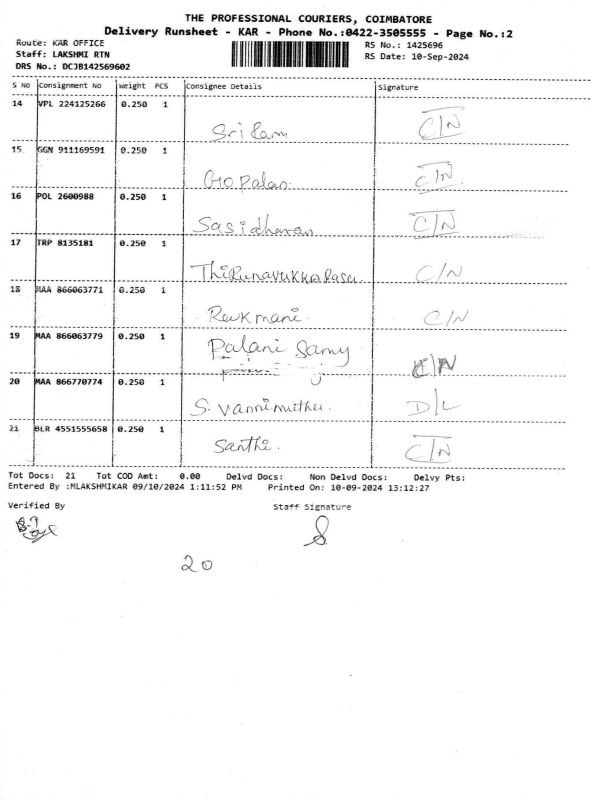 THE PROFESSIONAL COURIERS, COIMBATORE
Delivery Runsheet - KAR - Phone No.:0422-3505555 - Page No.:2
Route: KAR OFFICE RS No.: 1425696
Staff: LAKSHMI RTN RS Date: 10-Sep-2024
DRS No.: DCJB142569602
S No Consignment No Weight PCS Consignee Details Signature
14 VPL 224125266 0.250 1 Sri Ram C/N
15 GGN 911169591 0.250 1 Gopalan. C/N
16 POL 2600988 0.250 1 Sasidharan C/N
17 TRP 8135181 0.250 1 Thirunavukkarasu. C/N
18 MAA 866063771 0.250 1 Reukmani. C/N
19 MAA 866063779 0.250 1 Palani Samy C/N
20 MAA 866770774 0.250 1 S. Vannimuthu. D/L
21 BLR 4551555658 0.250 1 Santhi. C/N
Tot Docs: 21 Tot COD Amt: 0.00 Delvd Docs: Non Delvd Docs: Delvy Pts:
Entered By :MLAKSHMIKAR 09/10/2024 1:11:52 PM Printed On: 10-09-2024 13:12:27
Verified By Staff Signature
20